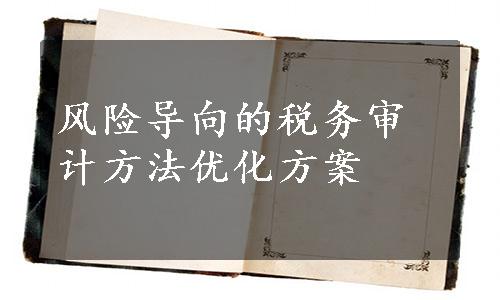 风险导向的税务审
计方法优化方案